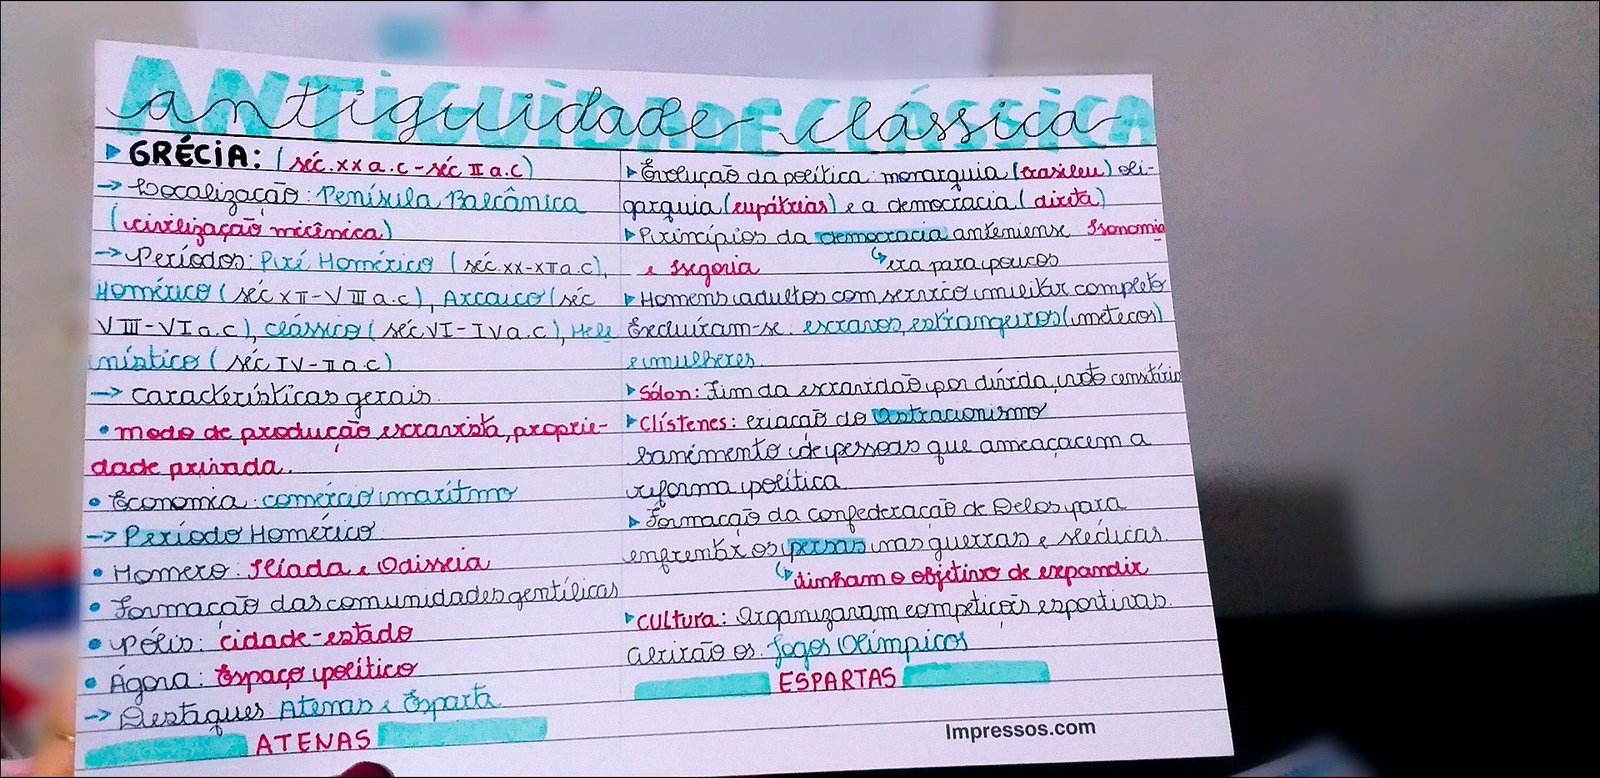 ANTIGUIDADE CLÁSSICA
antiguidade clássica
GRÉCIA: (séc. xx a.c - séc II a.c)
→ Localização: Penísula Balcânica
(civilização micênica)
→ Períodos: Pré Homérico (séc. xx-XII a.c),
Homérico (séc XII - VIII a.c), Arcaico (séc
VIII - VI a.c), clássico (séc VI - IV a.c), Hele
nístico (séc IV - II a.c)
→ características gerais.
• modo de produção escravista, proprie-
dade privada.
• Economia: comércio marítmo
→ Período Homérico
• Homero: Ilíada e Odisseia
• Formação das comunidades gentílicas
• Pólis: cidade-estado
• Ágora: Espaço político
→ Destaques: Atenas e Esparta
ATENAS
Evolução da política: monarquia (basileu) oli-
garquia (eupátrias) e a democracia (direta)
Princípios da democracia anteniense Isonomia
e Isegoria
era para poucos
Homens adultos com serviço militar completo
Excluíram-se: escravos, estrangeiros (metecos)
e mulheres.
Sólon: Fim da escravidão por dívida, voto censitário
Clístenes: criação do ostracionismo
banimento de pessoas que ameaçacem a
reforma política.
Formação da Confederação de Delos para
enfrentar os persas nas guerras e Médicas.
tinham o objetivo de expandir
Cultura: Organizavam competições esportivas.
os Jogos Olímpicos
ESPARTAS
Impressos.com